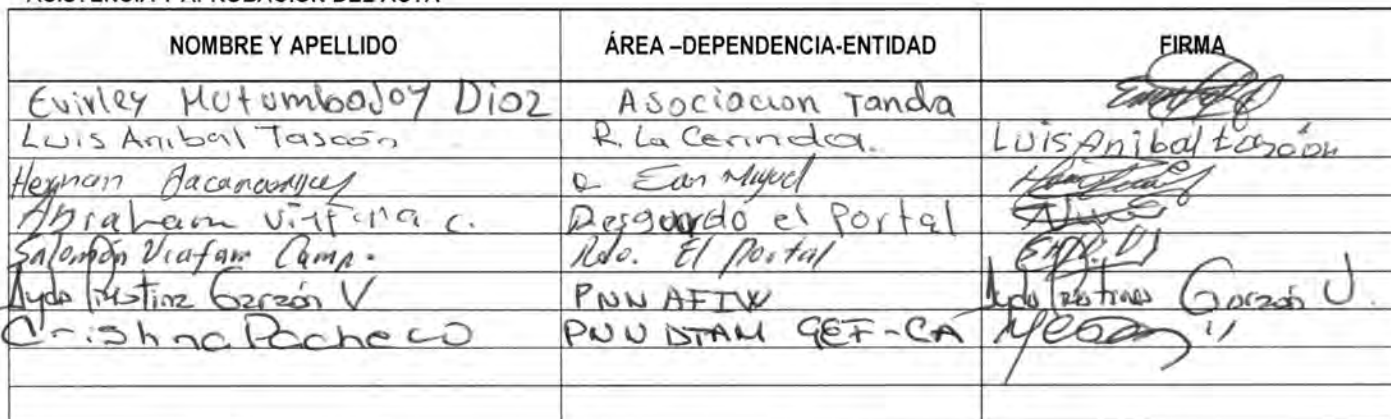 ASISTENCIA Y APROBACIÓN DEL ACTA
NOMBRE Y APELLIDO ÁREA –DEPENDENCIA-ENTIDAD FIRMA
Evirley Mutumbajoy Dioz Asociacion Tanda
Luis Anibal Tascón R. La Cerinda. Luis Anibal tascón
Hernan San Miguel
Abraham c. Resguardo el Portal
Salomón Viafara Camp. Rdo. El Portal
Ayda Cristina Garzón V PNN AFIW Ayda Cristina Garzón V.
Cristina Pacheco PNN DTAM GEF-CA